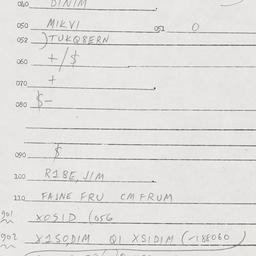 040 DINIM
050 MIKVI 051 O
052 )TUKQBERN
060 +/$
070 +
080 $-
090 $
100 R1BE, JIM
110 FAINE FRU CMFRUM
901 XOSID (056
902 X1SODIM QI XSIDIM (-18E060)